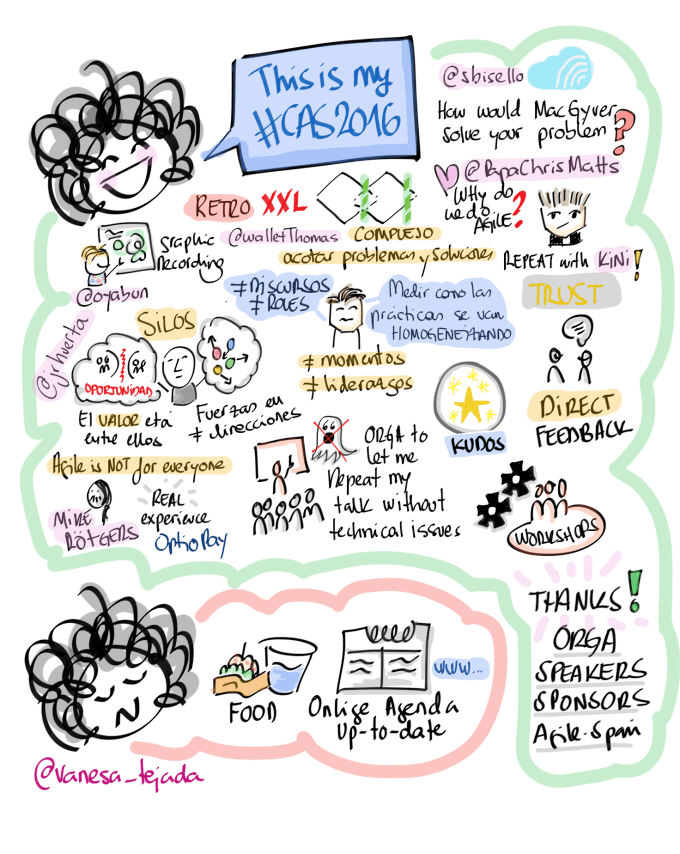 This is my
#CAS2016
@sbisello
How would MacGyver
solve your problem?
@PapaChrisMatts
Why do
we do
AGILE?
REPEAT with KiNi!
RETRO XXL
Graphic
Recording
@oyabun
@walletThomas COMPLEJO
acotar problemas y soluciones
≠ DISCURSOS
≠ ROLES
Medir como las
prácticas se van
HOMOGENEIZANDO
≠ momentos
≠ liderazgos
TRUST
DIRECT
FEEDBACK
@jrhuerta
SILOS
OPORTUNIDAD
El VALOR está
entre ellos
Fuerzas en
≠ direcciones
KUDOS
Agile is NOT for everyone
MIKE
RÖTGERS
REAL
experience
OptioPay
ORGA to
let me
Repeat my
talk without
technical issues
WORKSHOPS
THANKS!
ORGA
SPEAKERS
SPONSORS
Agile-Spain
FOOD
Online Agenda
Up-to-date
www...
@vanesa_tejada